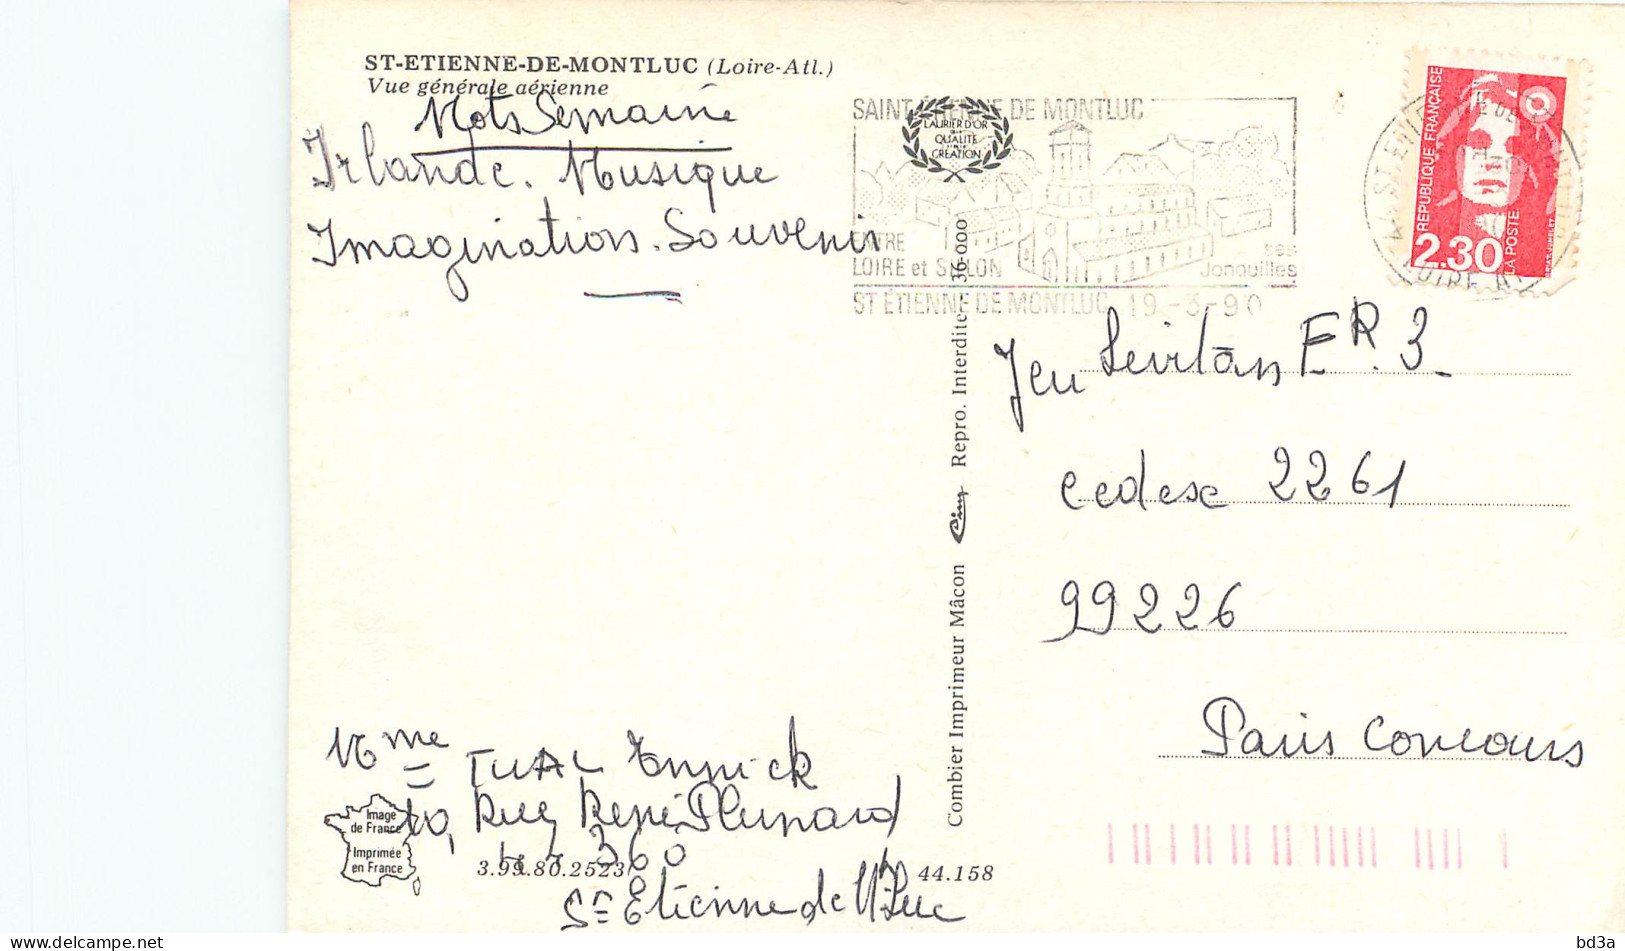 ST-ETIENNE-DE-MONTLUC (Loire-Atl.)
Vue générale aérienne
Mots Semaine
Irlande. Musique
Imagination. Souvenir
SAINT ÉTIENNE DE MONTLUC
LAURIER D'OR
QUALITÉ
CRÉATION
ENTRE
LOIRE et SILLON
ses
Jonquilles
ST ÉTIENNE DE MONTLUC 19-3-90
RÉPUBLIQUE FRANÇAISE
2.30
LA POSTE
LOIRE
Combier Imprimeur Mâcon Cim Repro. Interdite 36-000
Jeu Levitan F.R.3
cedex 2261
99226
Paris Concours
Mme TUAL Annick
10, Rue René Plunard
44360
St Etienne de Mt Luc
Image
de France
Imprimée
en France
3.99.80.2523
44.158
delcampe.net
bd3a